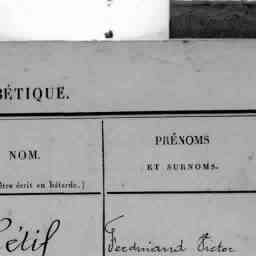 BÉTIQUE.
NOM.
PRÉNOMS
ET SURNOMS.
être écrit en bâtarde.)
étif
Ferdinand Victor